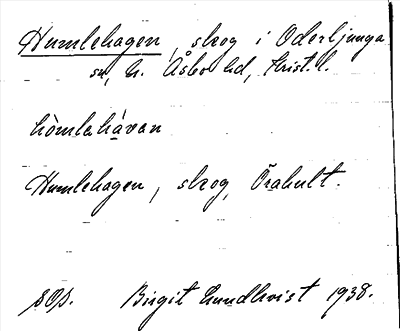 Humlehagen, skog i Oderljunga
sn, N. Åsbo hd, Krist. l.
hòmlahàvan
Humlehagen, skog, Örahult.
sOp. Birgit Lundkvist 1938.